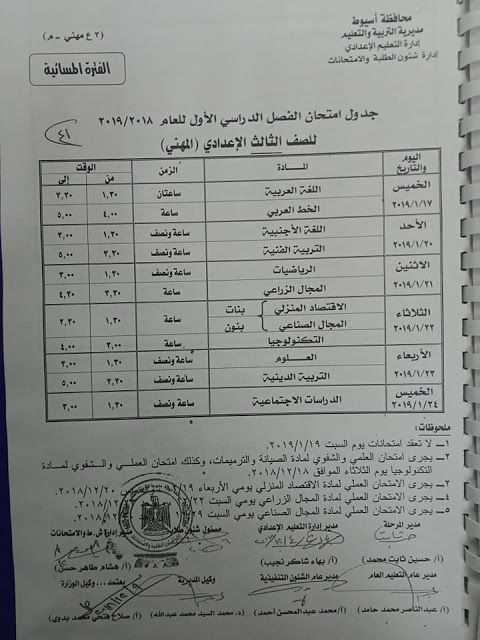 محافظة أسيوط
مديرية التربية والتعليم
إدارة التعليم الإعدادي
إدارة شئون الطلبة والامتحانات
(٣ ع مهني - م)
الفترة المسائية
جدول امتحان الفصل الدراسي الأول للعام ٢٠١٩/٢٠١٨
للصف الثالث الإعدادي (المهني)
٤١
اليوم والتاريخ المادة الزمن الوقت
من إلى
الخميس ٢٠١٩/١/١٧ اللغة العربية ساعتان ١,٣٠ ٣,٣٠
الخط العربي ساعة ٤,٠٠ ٥,٠٠
الأحد ٢٠١٩/١/٢٠ اللغة الأجنبية ساعة ونصف ١,٣٠ ٣,٠٠
التربية الفنية ساعة ونصف ٣,٣٠ ٥,٠٠
الاثنين ٢٠١٩/١/٢١ الرياضيات ساعة ونصف ١,٣٠ ٣,٠٠
المجال الزراعي ساعة ٣,٣٠ ٤,٣٠
الثلاثاء ٢٠١٩/١/٢٢ الاقتصاد المنزلي بنات ساعة ١,٣٠ ٢,٣٠
المجال الصناعي بنون
التكنولوجيا ساعة ٣,٠٠ ٤,٠٠
الأربعاء ٢٠١٩/١/٢٣ العلوم ساعة ونصف ١,٣٠ ٣,٠٠
التربية الدينية ساعة ونصف ٣,٣٠ ٥,٠٠
الخميس ٢٠١٩/١/٢٤ الدراسات الاجتماعية ساعة ونصف ١,٣٠ ٣,٠٠
ملحوظات:
١- لا تعقد امتحانات يوم السبت ٢٠١٩/١/١٩.
٢- يجرى امتحان العلمي والشفوي لمادة الصيانة والترميمات، وكذلك امتحان العملي والشفوي لمادة
التكنولوجيا يوم الثلاثاء الموافق ٢٠١٨/١٢/١٨.
٣- يجرى الامتحان العملي لمادة الاقتصاد المنزلي يومي الأربعاء ١٩ ٢٠١٨/١٢/٢٠.
٤- يجرى الامتحان العملي لمادة المجال الزراعي يومي السبت ٢٢ ٢٠١٨/١٢/
٥- يجرى الامتحان العملي لمادة المجال الصناعي يومي السبت ٢٩
مدير المرحلة مدير إدارة التعليم الإعدادي مسئول شئون مدير إدارة ش.ط والامتحانات
(أ/ حسين ثابت محمد) (أ/ بهاء شاكر نجيب) (أ/ هشام طاهر حسن)
مدير عام التعليم العام مدير عام الشئون التنفيذية وكيل المديرية يعتمد،،، وكيل الوزارة
(أ/ عبدالناصر محمد حامد) (أ/ محمد عبدالمحسن أحمد) (د. محمد السيد محمد عبدالله) (أ/ صلاح فتحي محمد بدوي)